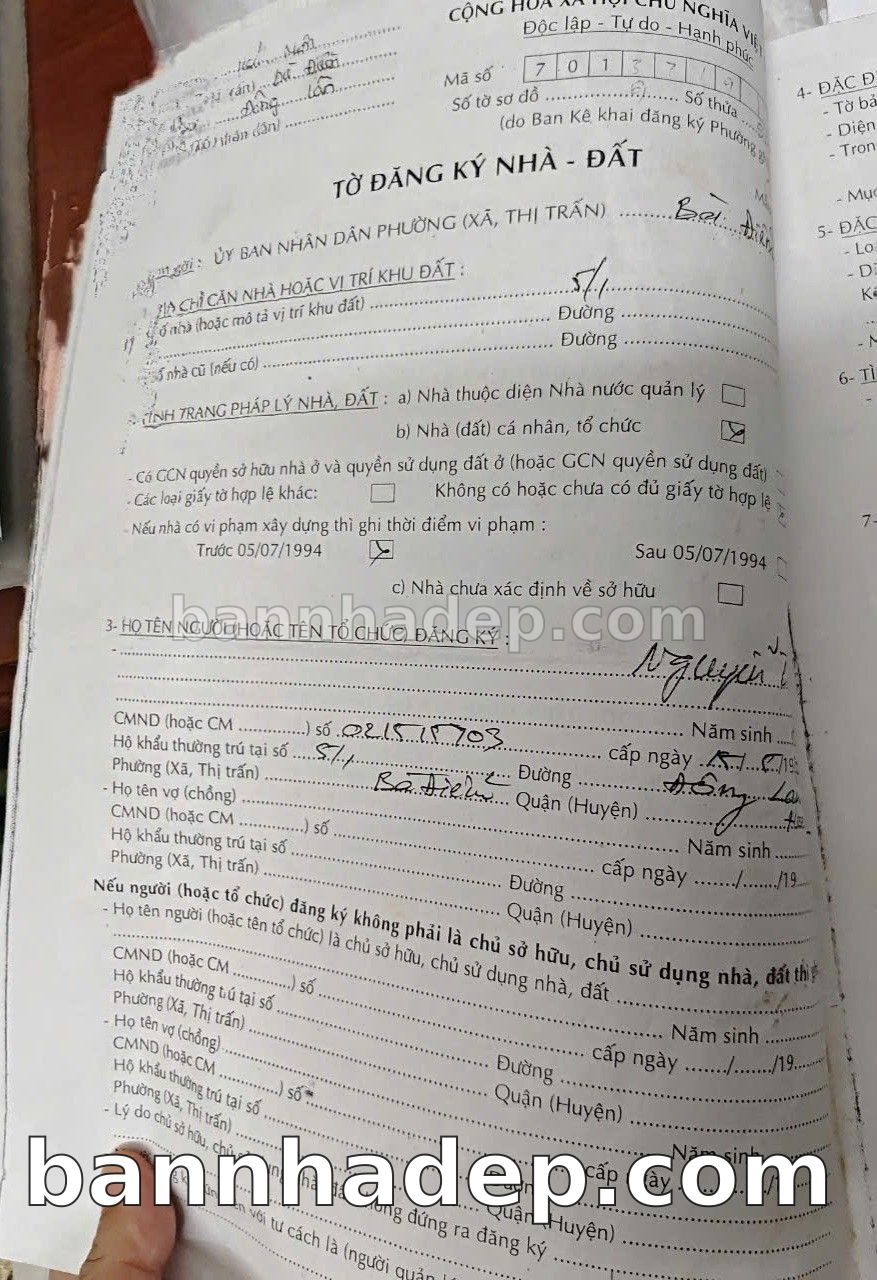 CỘNG HÒA XÃ HỘI CHỦ NGHĨA VIỆT
Độc lập - Tự do - Hạnh phúc
Bà Điểm
Đông Lân
Mã số 7 0 1
Số tờ sơ đồ Số thửa
(do Ban Kê khai đăng ký Phường
TỜ ĐĂNG KÝ NHÀ - ĐẤT
ỦY BAN NHÂN DÂN PHƯỜNG (XÃ, THỊ TRẤN) Bà Điểm
CHỈ CĂN NHÀ HOẶC VỊ TRÍ KHU ĐẤT :
ố nhà (hoặc mô tả vị trí khu đất) 5/1
Đường
ố nhà cũ (nếu có) Đường
TÌNH TRẠNG PHÁP LÝ NHÀ, ĐẤT : a) Nhà thuộc diện Nhà nước quản lý
b) Nhà (đất) cá nhân, tổ chức
- Có GCN quyền sở hữu nhà ở và quyền sử dụng đất ở (hoặc GCN quyền sử dụng đất)
- Các loại giấy tờ hợp lệ khác: Không có hoặc chưa có đủ giấy tờ hợp lệ
- Nếu nhà có vi phạm xây dựng thì ghi thời điểm vi phạm :
Trước 05/07/1994 Sau 05/07/1994
c) Nhà chưa xác định về sở hữu
bannhadep.com
3- HỌ TÊN NGƯỜI (HOẶC TÊN TỔ CHỨC) ĐĂNG KÝ :
- Nguyễn
Năm sinh
CMND (hoặc CM ) số 021515703 cấp ngày
Hộ khẩu thường trú tại số 5/1 Đường Đông Lân
Phường (Xã, Thị trấn) Bà Điểm Quận (Huyện)
- Họ tên vợ (chồng) Năm sinh
CMND (hoặc CM ) số cấp ngày / /19
Hộ khẩu thường trú tại số Đường
Phường (Xã, Thị trấn) Quận (Huyện)
Nếu người (hoặc tổ chức) đăng ký không phải là chủ sở hữu, chủ sử dụng nhà, đất thì
- Họ tên người (hoặc tên tổ chức) là chủ sở hữu, chủ sử dụng nhà, đất
Năm sinh
CMND (hoặc CM ) số cấp ngày / /19
Hộ khẩu thường trú tại số Đường
Phường (Xã, Thị trấn) Quận (Huyện)
- Họ tên vợ (chồng) Năm sinh
CMND (hoặc CM ) số cấp ngày /
Hộ khẩu thường trú tại số
Phường (Xã, Thị trấn) Quận (Huyện)
- Lý do chủ sở hữu, đứng ra đăng ký
với tư cách là (người quản
bannhadep.com
4- ĐẶC Đ
- Tờ bả
- Diện
- Tron
- Mục
5- ĐẶC
- Lo
- Di
6- TÌ
7-